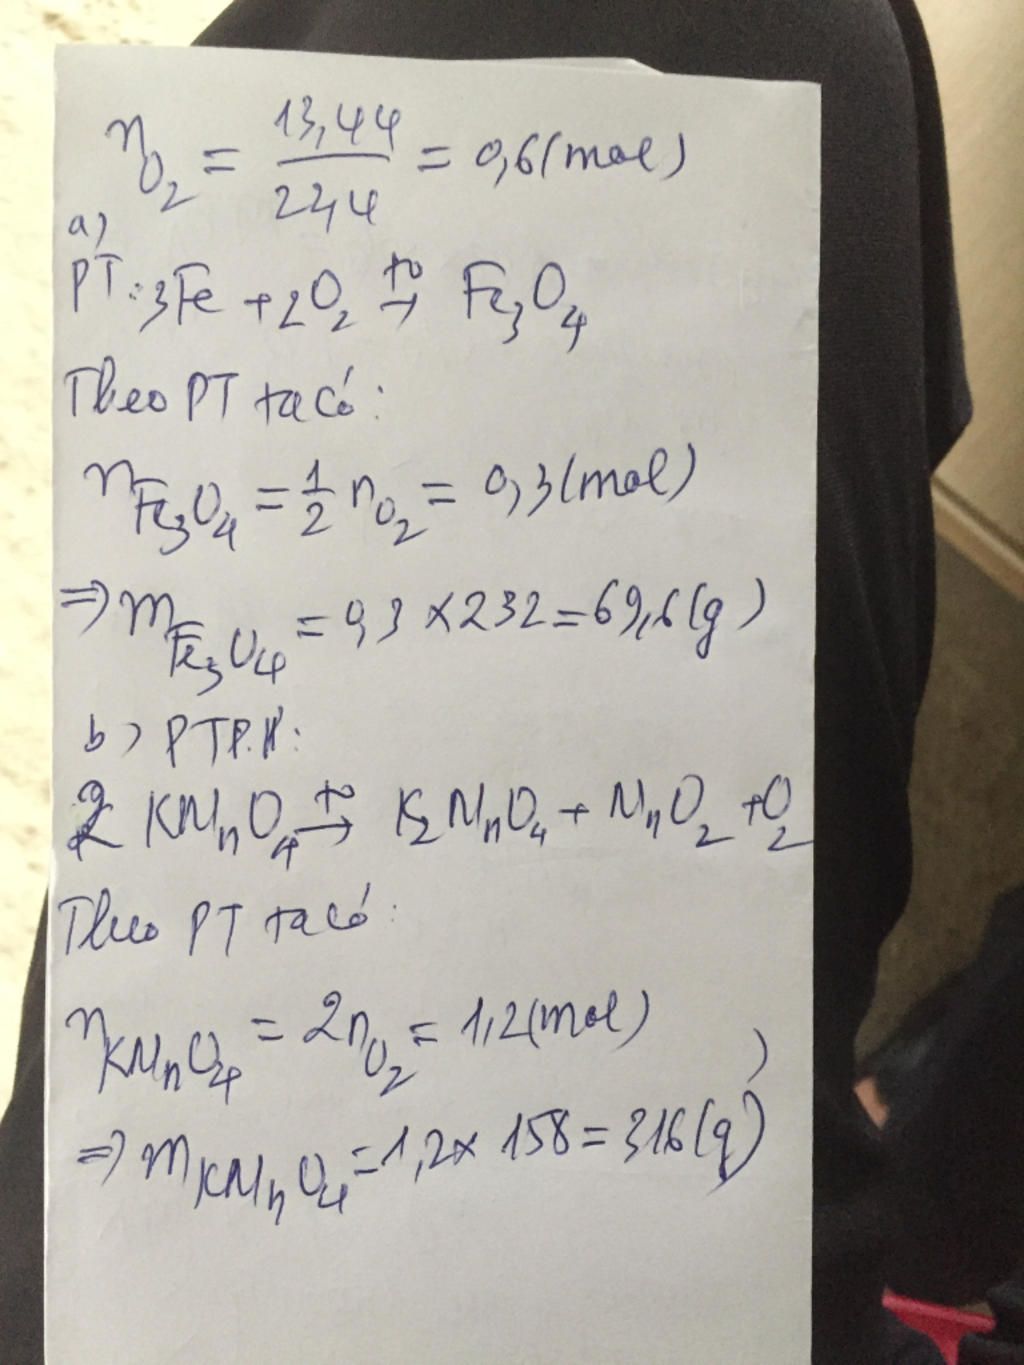 n_O₂ = 13,44/22,4 = 0,6 (mol)
a)
PT: 3Fe + 2O₂ t⁰→ Fe₃O₄
Theo PT ta có:
n_Fe₃O₄ = 1/2 n_O₂ = 0,3 (mol)
=> m_Fe₃O₄ = 0,3 × 232 = 69,6 (g)
b) PTPƯ:
2 KMnO₄ t⁰→ K₂MnO₄ + MnO₂ + O₂
Theo PT ta có:
n_KMnO₄ = 2n_O₂ = 1,2 (mol)
=> m_KMnO₄ = 1,2 × 158 = 316 (g)